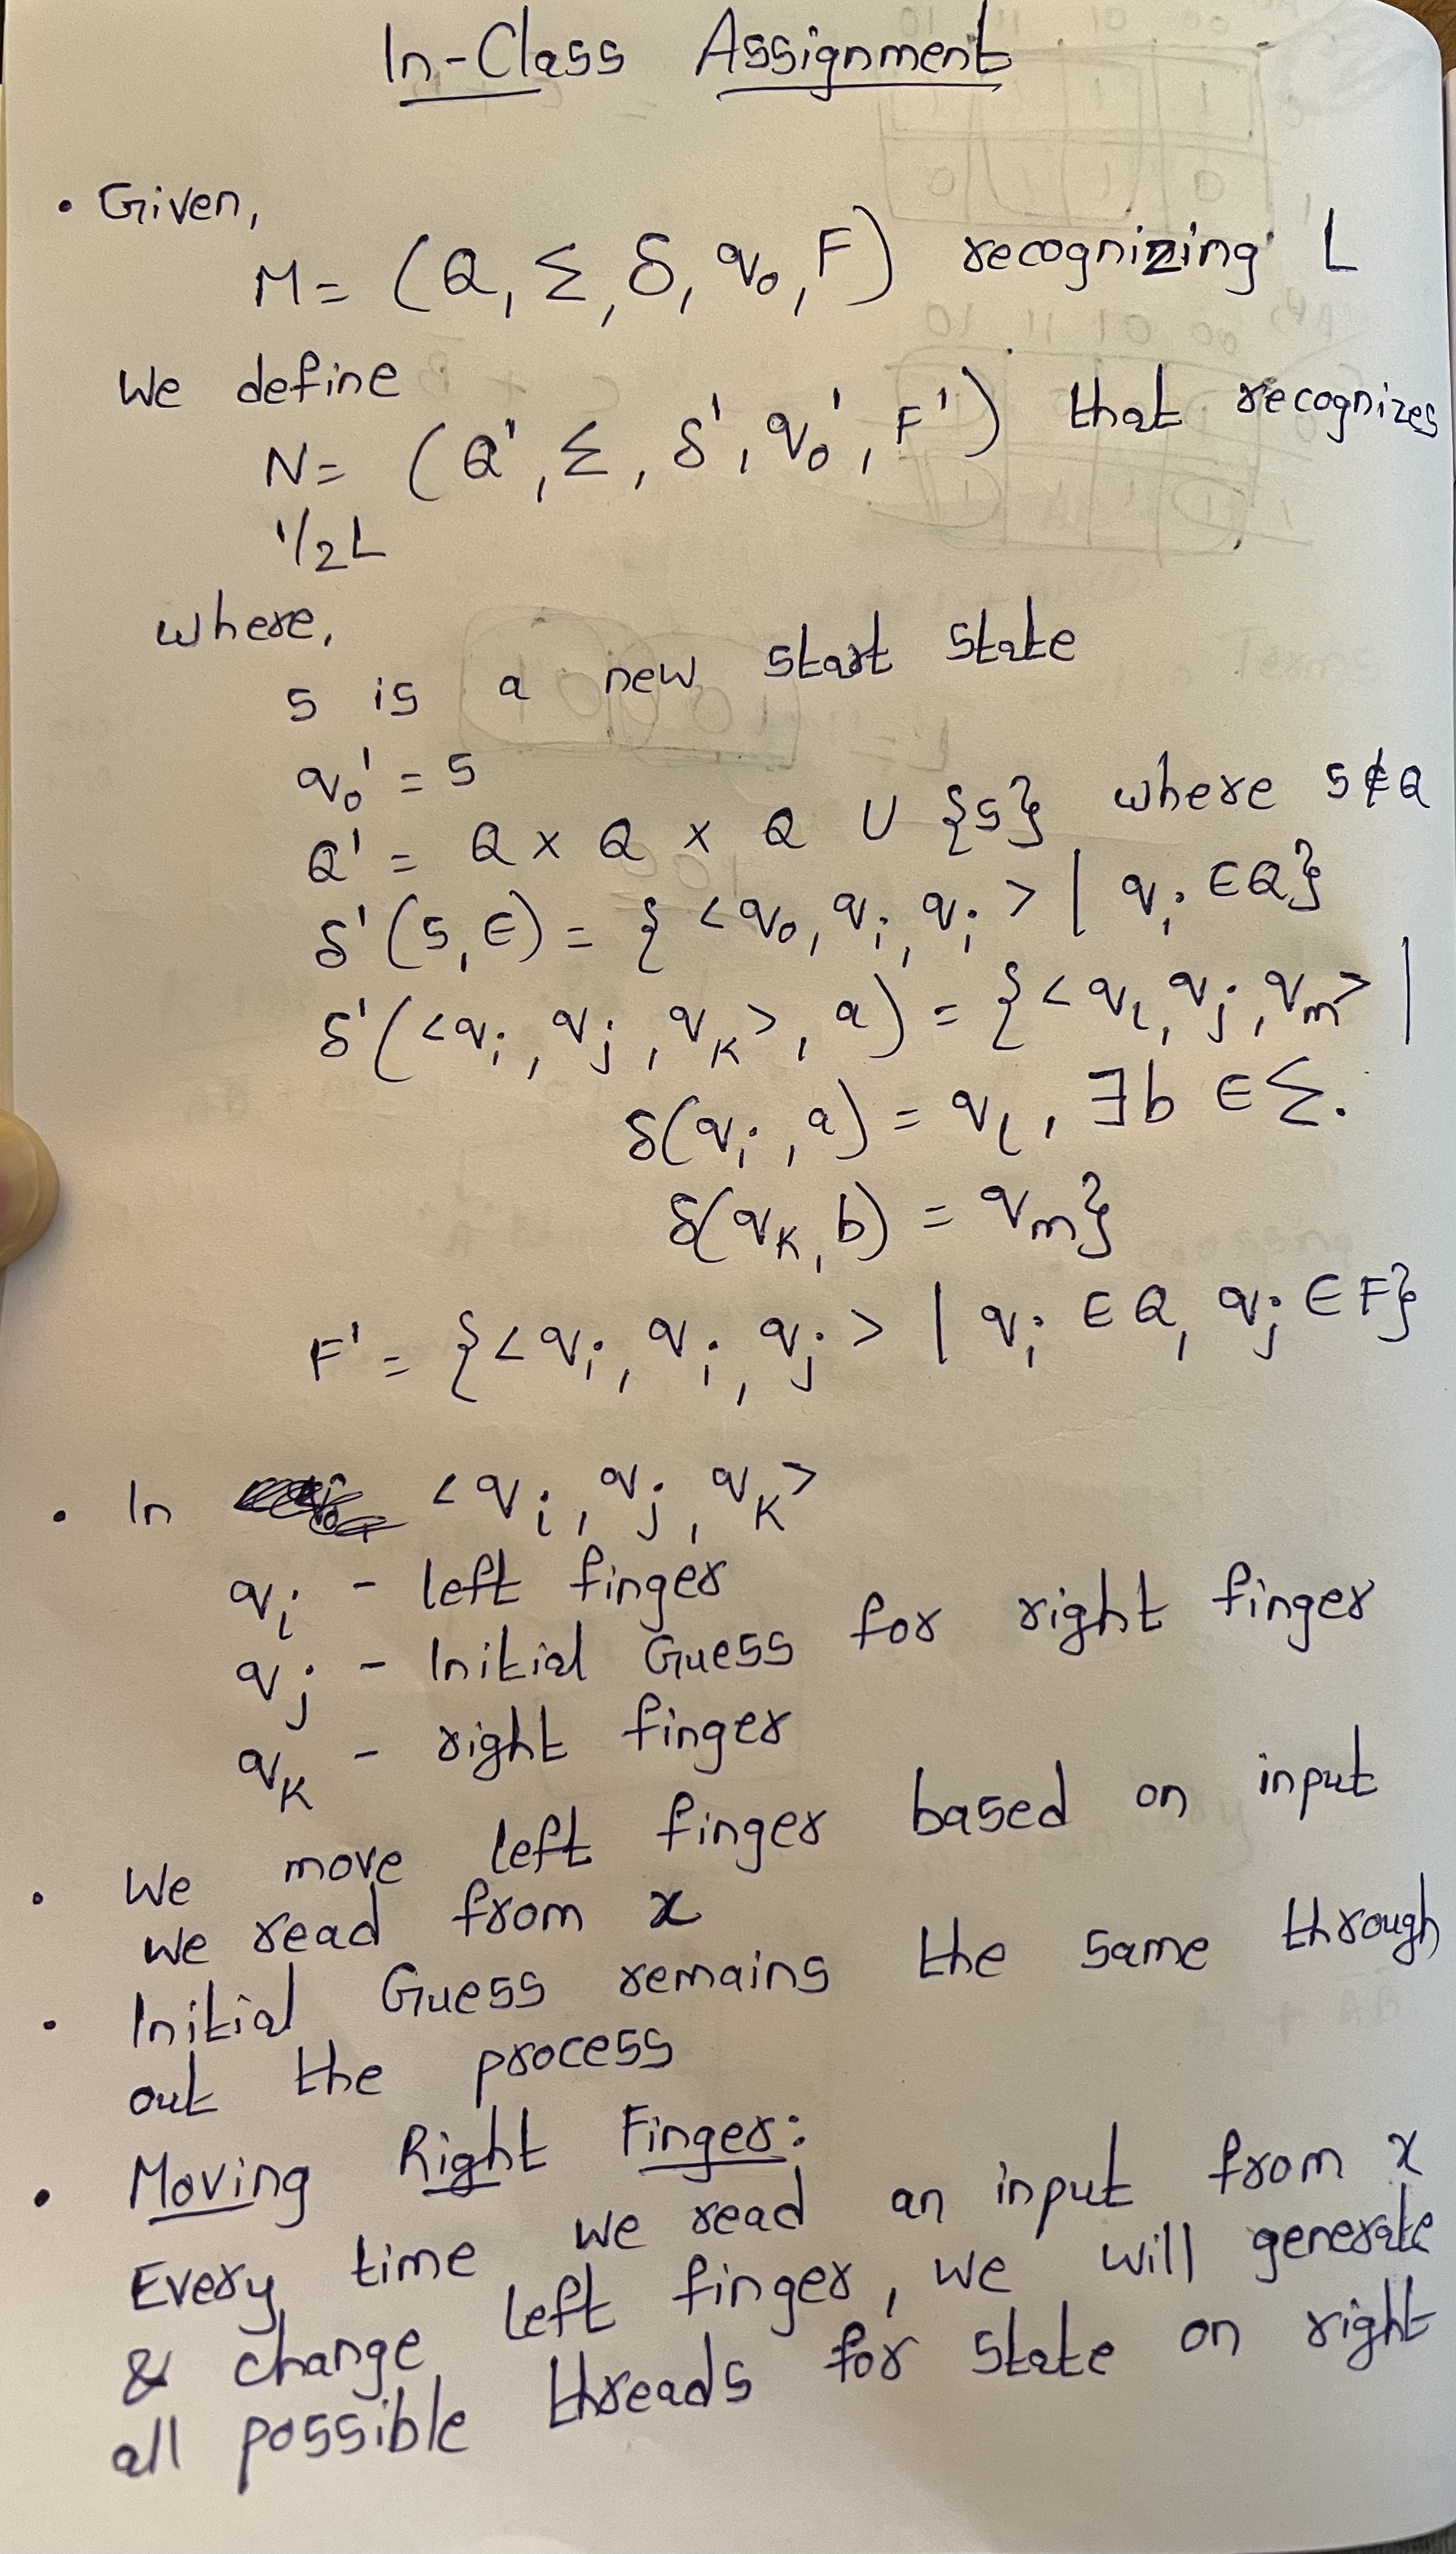 In-Class Assignment
• Given,
M = (Q, Σ, δ, q₀, F) recognizing L
We define
N = (Q', Σ, δ', q₀', F') that recognizes
1/2 L
where,
s is a new start state
q₀' = s
Q' = Q × Q × Q ∪ {s} where s ∉ Q
δ'(s, ∈) = { <q₀, qᵢ, qᵢ> | qᵢ ∈ Q}
δ'(<qᵢ, qⱼ, qₖ>, a) = {<qₗ, qⱼ, qₘ> |
δ(qᵢ, a) = qₗ, ∃b ∈ Σ.
δ(qₖ, b) = qₘ}
F' = {<qᵢ, qᵢ, qⱼ> | qᵢ ∈ Q, qⱼ ∈ F}
• In <qᵢ, qⱼ, qₖ>
qᵢ - left finger
qⱼ - Initial Guess for right finger
qₖ - right finger
• We move left finger based on input
we read from x
• Initial Guess remains the same through
out the process
• Moving Right Finger:
Every time we read an input from x
& change left finger, we will generate
all possible threads for state on right